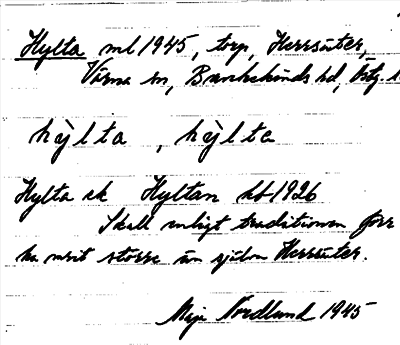 Hylta ml 1945, torp, Herrsäter,
Vårna sn, Bankekinds hd, Östg.
hy̆lta, hy̆lta
Hylta ek Hyltan hbl 1926
Skall enligt traditionen förr
ha varit större än själva Herrsäter.
Maja Nordlund 1945